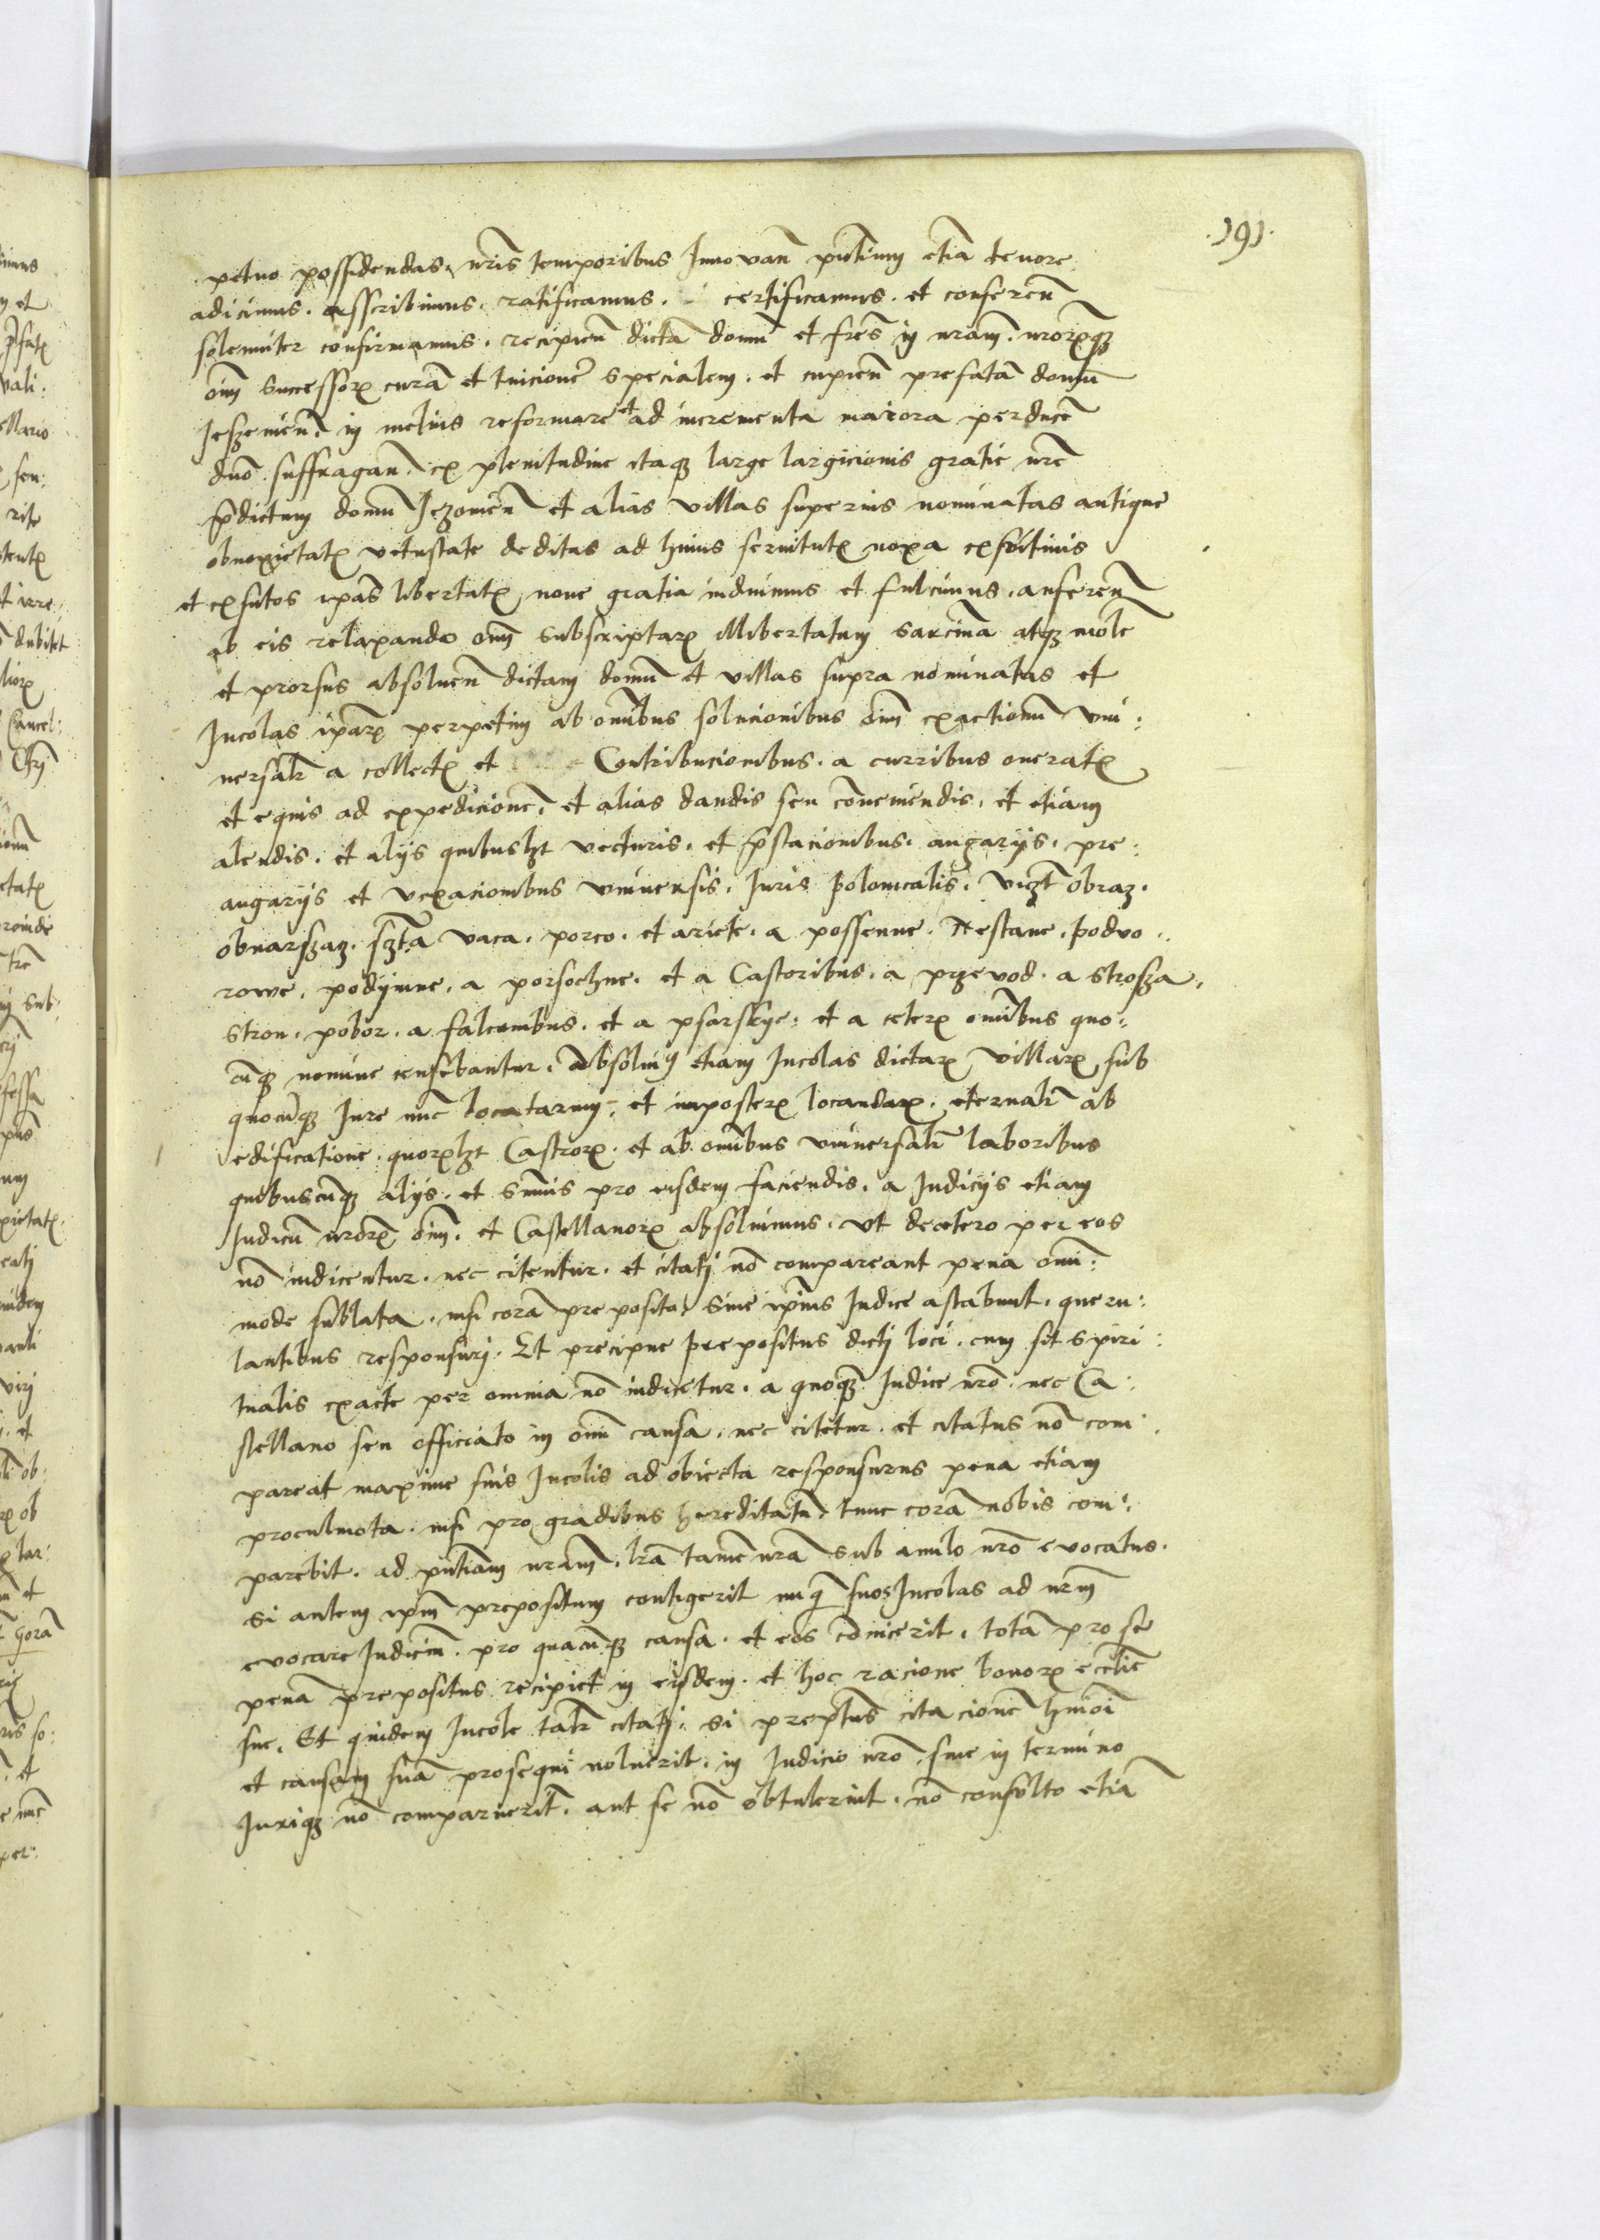 .191.
petuo possidendas, nris temporibus Innovan pntium etia tenore
adicimus. asscribimus. ratificamus. certificamus. et conferen
solemniter confirmamus. recipien dicta domu et fres in nram. nrorq
oim successor cura et tuicione specialem. et cupien prefata domu
Jeszomen. in melius reformare et ad incrementa maiora perducere
duo suffragan. ex plenitudine itaq large largicionis gratie nre
pdictum domu Jezomen et alias villas superius nominatas antique
obnoxietat vetustate deditas ad huius servitut noxa eximimus
et exsutos ipas libertat, nove gratia induimus et fulcimus. auferen
ab eis relaxando oim subscriptar illibertatum sarcina atq mole
et prorsus absoluen dictam domu et villas supra nominatas et
Incolas ipar perpetim ab omibus solucionibus oim exactionu vni:
uersali a collect et Contribucionibus. a curribus onerat
et equis ad expedicione. et alias dandis seu conuenendis. et etiam
alendis. et alijs quibuslzt vecturis. et pstacionibus. angarijs. pre:
angarijs et vexacionibus vniuersis. Iuris polonicalis. vizt obraz.
obnarszaz. szta vaca. porco. et ariete. a possenne. Nestane. podvo:
rowe. podijmne. a porsochne. et a Castoribus. a przevod. a strosza,
stron. pobor. a falconibus. et a psarskye. et a ceter omibus quo:
cuq nomine censebantur. Absoluim etiam Incolas dictar villar sub
quocuq Iure nuc locatarum, et imposter locandar. eternali ab
edificatione. quorlzt Castror. et ab omibus vniuersali laboribus
quibuscuq alijs. et summis pro eisdem faciendis. a Iudicijs etiam
Iudicu nror oim. et Castellanor absoluimus. vt decetero per eos
no iudicentur. nec citentur. et citatj no compareant pena omi:
mode sublata. nisi cora preposito, siue ipius Iudice astabunt. queru:
lantibus responsurj. Et precipue prepositus dictj loci. cum sit spiri:
tualis exacte per omnia no iudicetur. a quoq Iudice nro. nec Ca:
stellano seu officiato in omi causa. nec citetur. et citatus no com:
pareat maxime suis Incolis ad obiecta responsurus pena etiam
proculmota. nisi pro gradibus hereditatu, tunc cora nobis com:
parebit. ad pntiam nram. lra tame nra sub anulo nro evocatus.
si autem ipm prepositum contigerit suos Incolas ad nrm
evocare Iudiciu. pro quacuq causa. et eos conicerit. tota pro se
pena prepositus recipiet in eisdem. et hoc racione bonor ecclie
sue. Et quidem Incole tali citatj. si preptus citacione hmoi
et causam sua prosequi noluerit. in Iudicio nro. siue in termino
Iuriq no comparuerit. aut se no obtulerint. no consulto etia